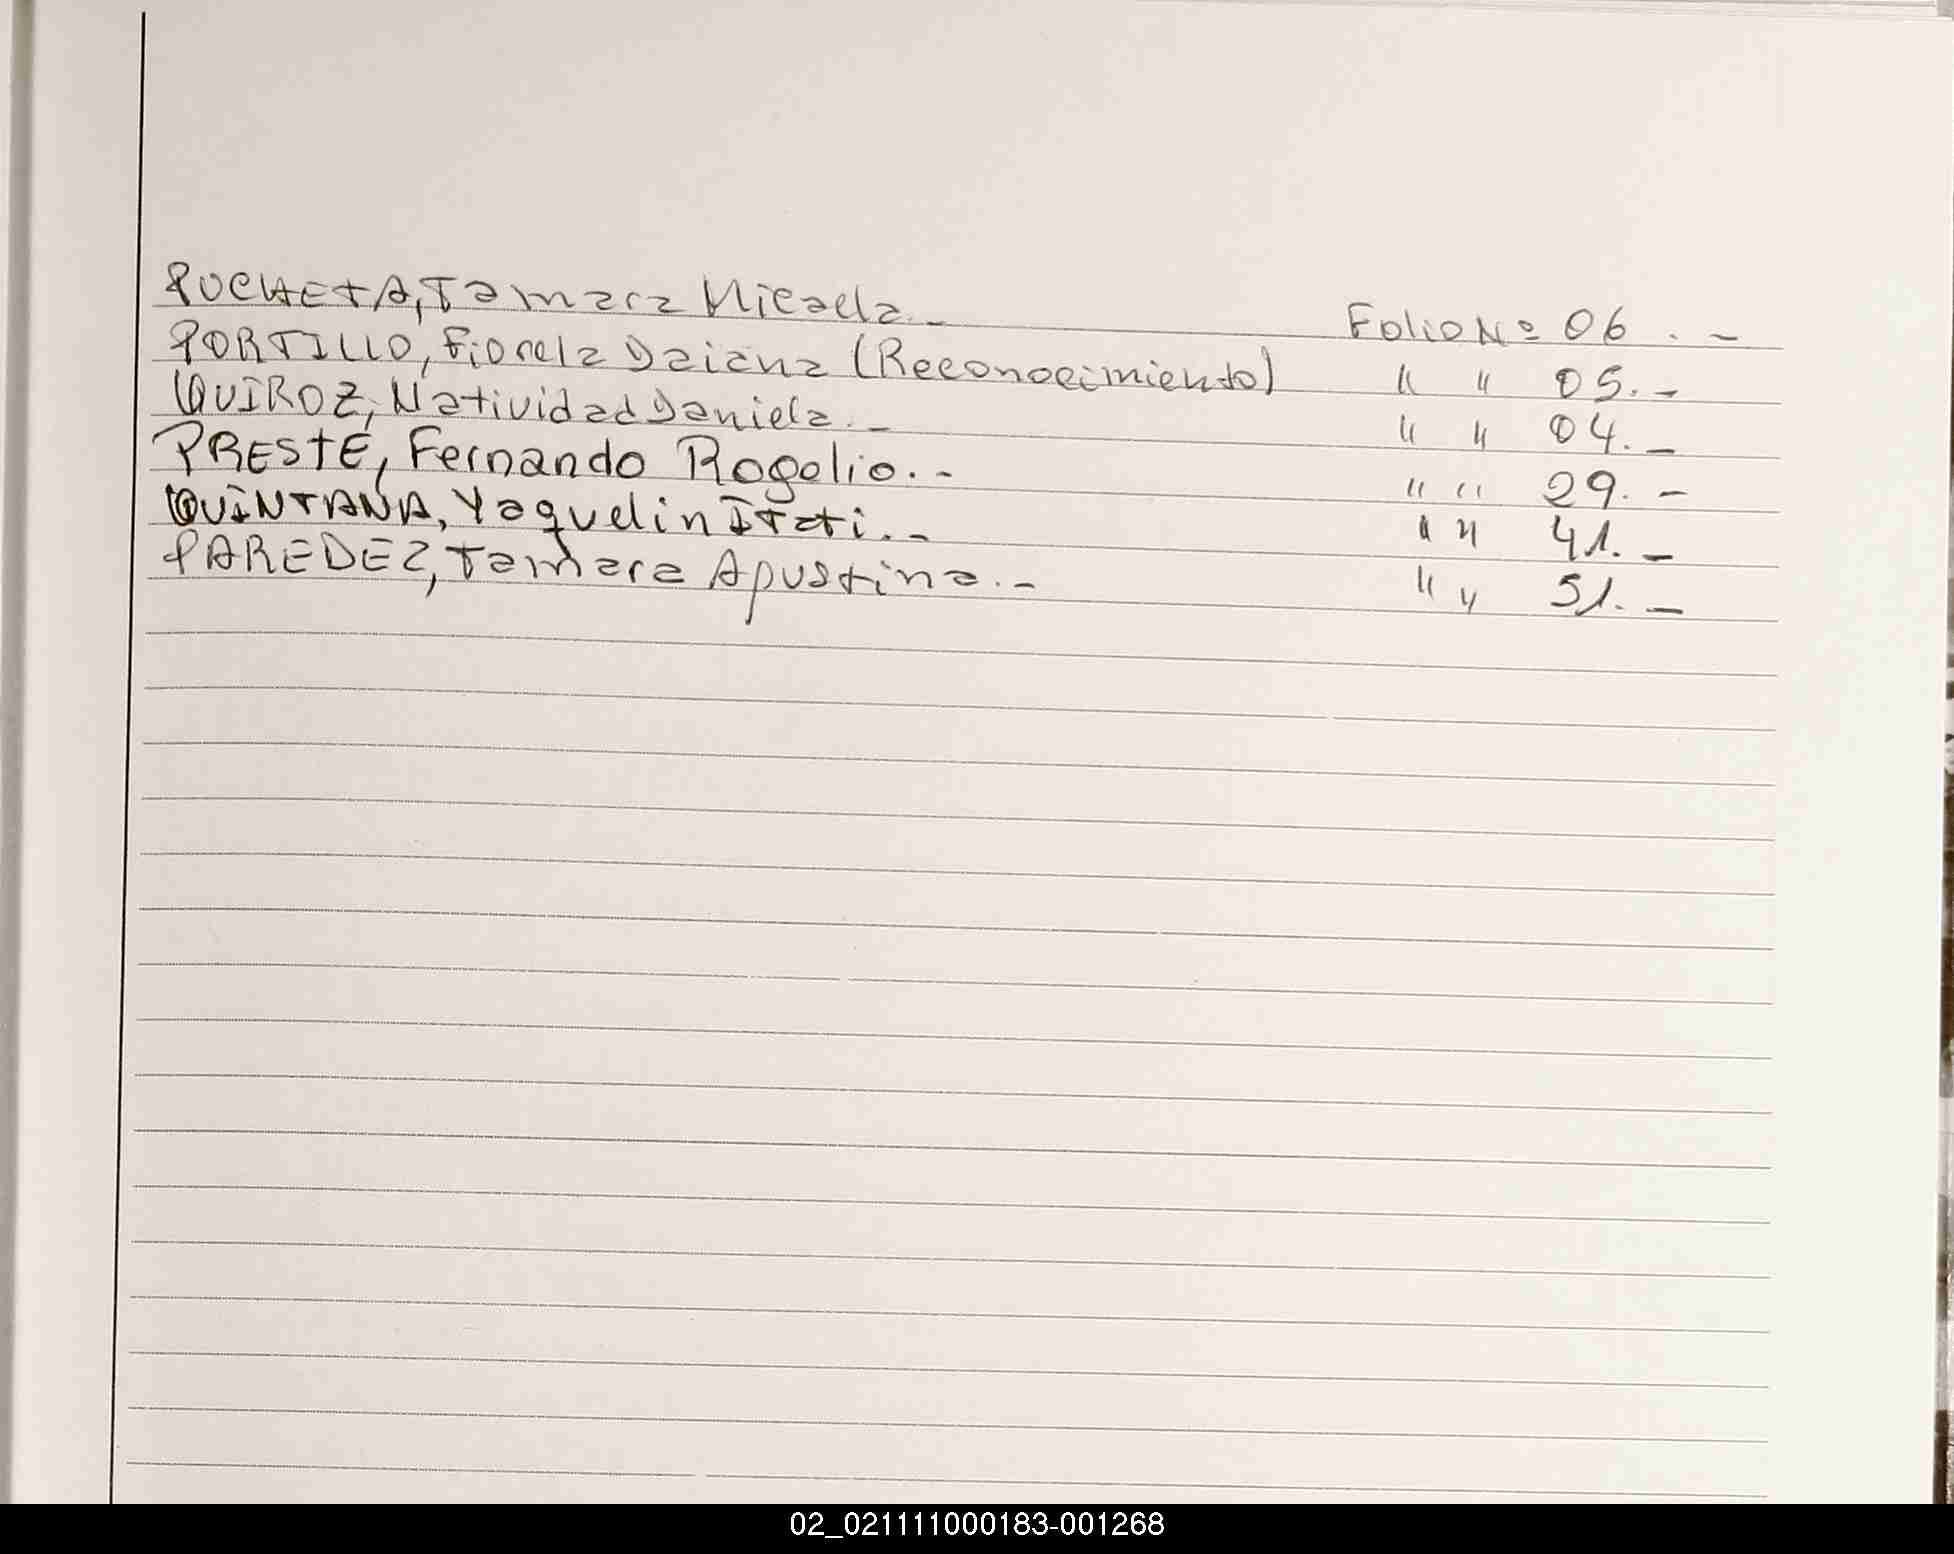 POCHETA, Tamara Micaela.- Folio Nº 06.-
PORTILLO, Fiorela Daiana (Reconocimiento) " " 05.-
QUIROZ, Natividad Daniela.- " " 04.-
PRESTE, Fernando Rogelio.- " " 29.-
QUINTANA, Yaquelin Itati.- " " 41.-
PAREDEZ, Tamara Agustina.- " " 51.-
02_021111000183-001268